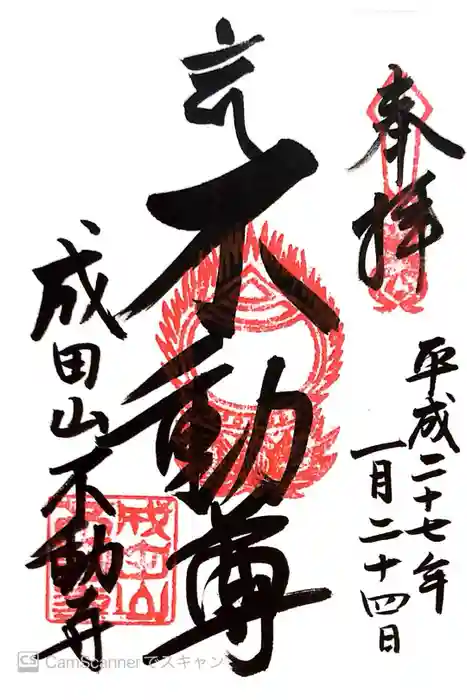 奉拝
平成二十七年
一月二十四日
不動尊
成田山不動寺
CS CamScanner でスキャン